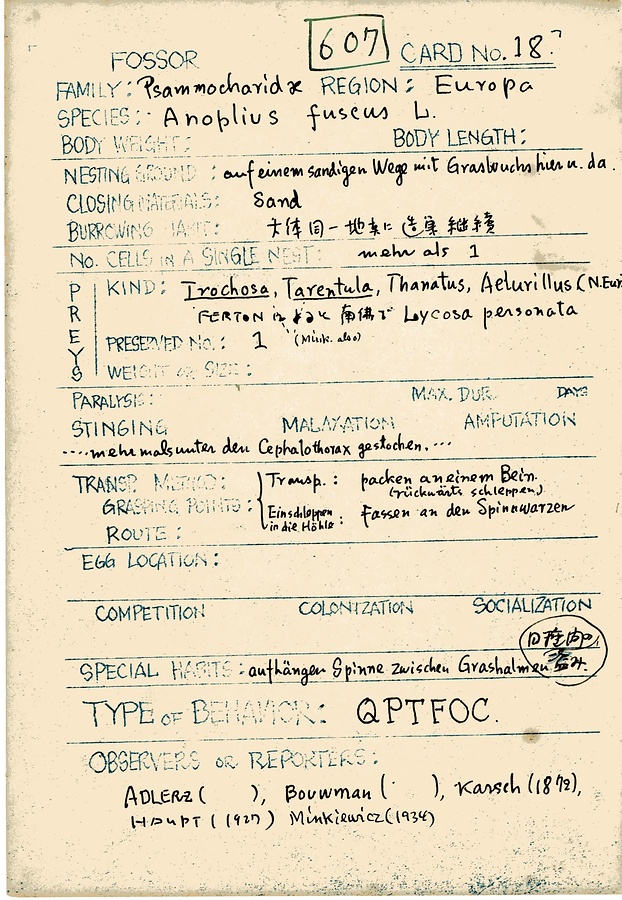 607
FOSSOR CARD No. 18
FAMILY: Psammocharidæ REGION: Europa
SPECIES: Anoplius fuscus L.
BODY WEIGHT: BODY LENGTH:
NESTING GROUND: auf einem sandigen Wege mit Graswuchs hier u. da.
CLOSING MATERIALS: Sand
BURROWING HABIT: 大体同一地点に造巣継続
No. CELLS IN A SINGLE NEST: mehr als 1
PREYS
KIND: Trochosa, Tarentula, Thanatus, Aelurillus (N.Eur
FERTON によると南佛で Lycosa personata
PRESERVED No.: 1 (Mink. also)
WEIGHT OR SIZE:
PARALYSIS: MAX. DUR. DAYS
STINGING MALAXATION AMPUTATION
....mehrmals unter den Cephalothorax gestochen....
TRANSP. METHOD: Transp.: packen an einem Bein.
(rückwärts schleppen)
GRASPING POINTS: Einschleppen in die Höhle: fassen an den Spinnwarzen
ROUTE:
EGG LOCATION:
COMPETITION COLONIZATION SOCIALIZATION
SPECIAL HABITS: aufhängen Spinne zwischen Grashalmen
TYPE OF BEHAVIOR: QPTFOC.
OBSERVERS OR REPORTERS:
ADLERZ ( ), Bouwman ( ), Karsch (1872),
HAUPT (1927) Minkiewicz (1934)